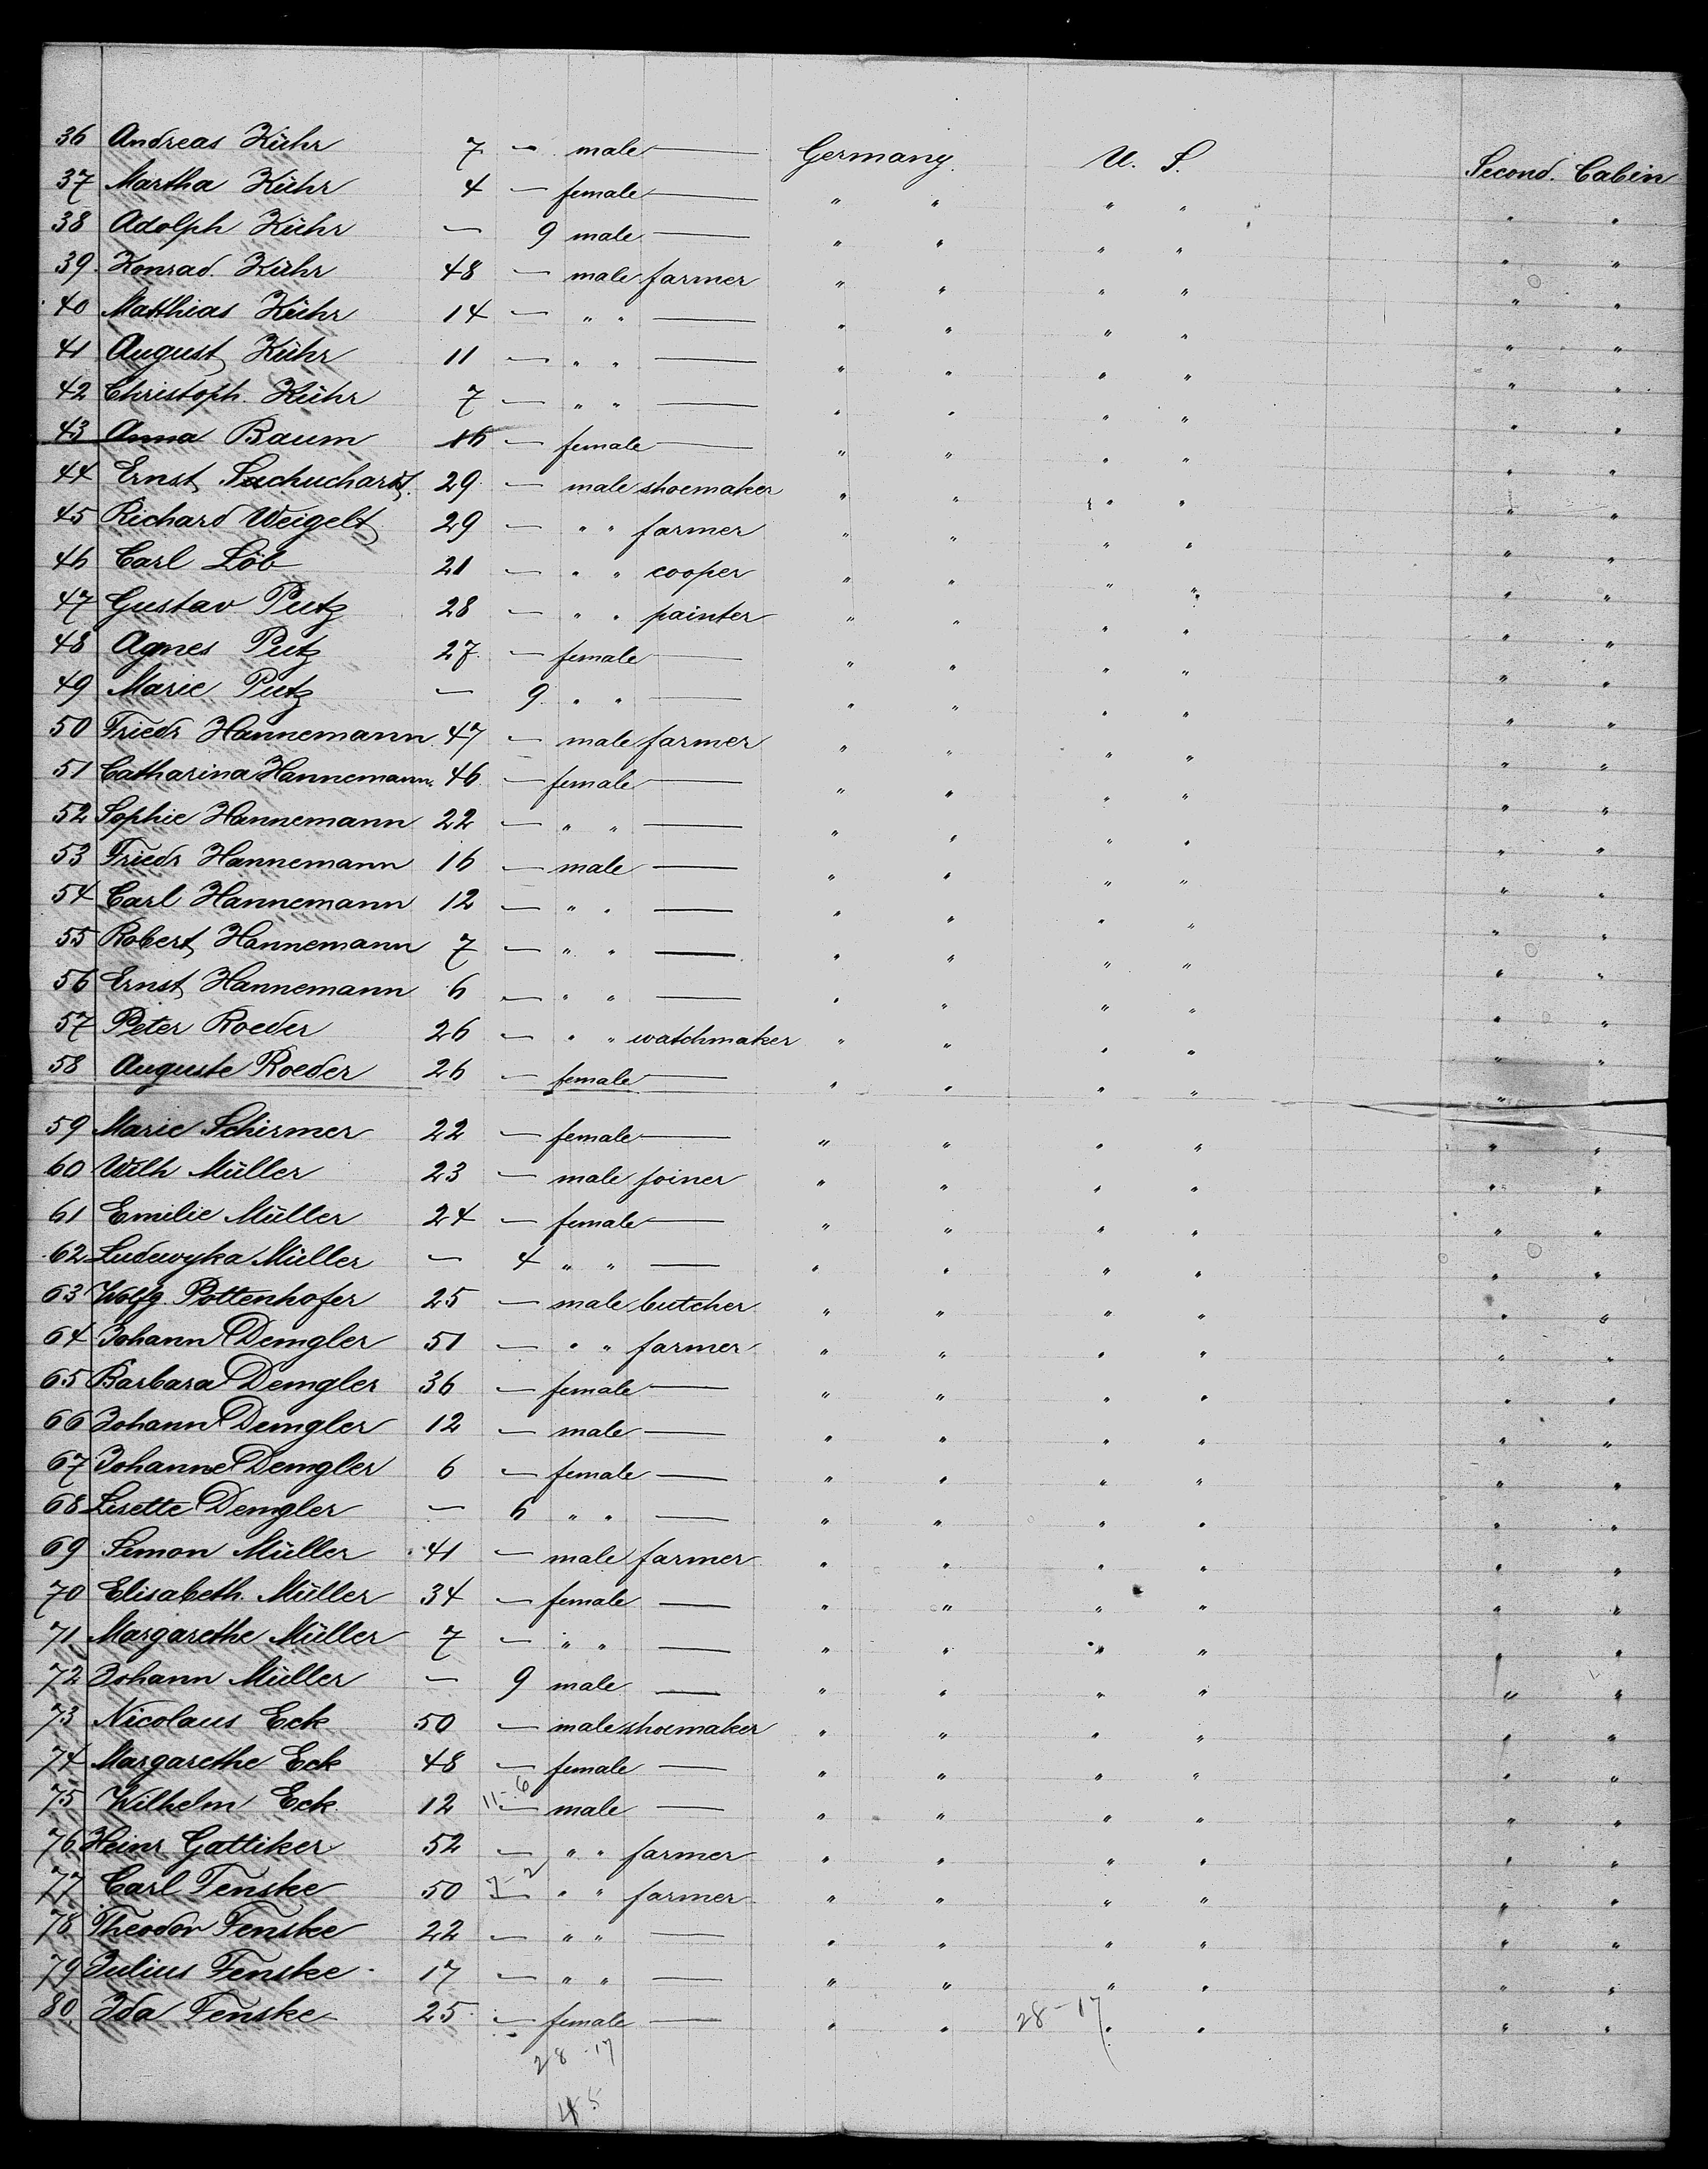 36 Andreas Kühr 7 — male — Germany. U. S. Second. Cabin
37 Martha Kühr 4 — female — " " " " " "
38 Adolph Kühr — 9 male — " " " " " "
39. Konrad. Kühr 48 — male farmer " " " " " "
40 Matthias Kühr 14 — " " — " " " " " "
41 August Kühr 11 — " " — " " " " " "
42 Christoph. Kühr 7 — " " — " " " " " "
43 Anna Baum 16 — female — " " " " " "
44 Ernst 29. — male shoemaker " " " " " "
45 Richard Weigelt 29 — " " farmer " " " " " "
46 Carl Löb 21 — " " cooper " " " " " "
47 Gustav Putz 28 — " " painter " " " " " "
48 Agnes Putz 27. — female — " " " " " "
49 Marie Putz — 9. " " — " " " " " "
50 Friedr Hannemann. 47 — male farmer " " " " " "
51 Catharina Hannemann. 46. — female — " " " " " "
52 Sophie Hannemann 22 — " " — " " " " " "
53 Friedr Hannemann 16 — male — " " " " " "
54 Carl Hannemann 12 — " " — " " " " " "
55 Robert Hannemann 7 — " " — " " " " " "
56 Ernst Hannemann 6 — " " — " " " " " "
57 Peter Roeder 26 — " " watchmaker " " " " " "
58 Auguste Roeder 26 — female — " " " " " "
59 Marie Schirmer 22 — female — " " " " " "
60 Wilh Müller 23 — male joiner " " " " " "
61 Emilie Müller 24 — female — " " " " " "
62 Ludewyka Müller — 4 " " — " " " " " "
63 Wolfg. Pottenhofer 25 — male butcher " " " " " "
64 Johann Demgler 51 — " " farmer " " " " " "
65 Barbara Demgler 36 — female — " " " " " "
66 Johann Demgler 12 — male — " " " " " "
67 Johanne Demgler 6 — female — " " " " " "
68 Lisette Demgler — 6 " " — " " " " " "
69 Simon Müller 41 — male farmer " " " " " "
70 Elisabeth. Müller 34 — female — " " " " " "
71 Margarethe Müller 7 — " " — " " " " " "
72 Johann Müller — 9 male — " " " " " "
73 Nicolaus Eck 50 — male shoemaker " " " " " "
74 Margarethe Eck 48 — female — " " " " " "
75 Wilhelm Eck. 12 11-6 — male — " " " " " "
76 Heinr Gattiker 52 — " " farmer " " " " " "
77 Carl Fenske 50 7-2 — " " farmer " " " " " "
78 Theodor Fenske 22 — " " — " " " " " "
79 Julius Fenske 17 — " " — " " " " " "
80. Ida Fenske 25 — female — " " 28-17 " " " "
28-17
45